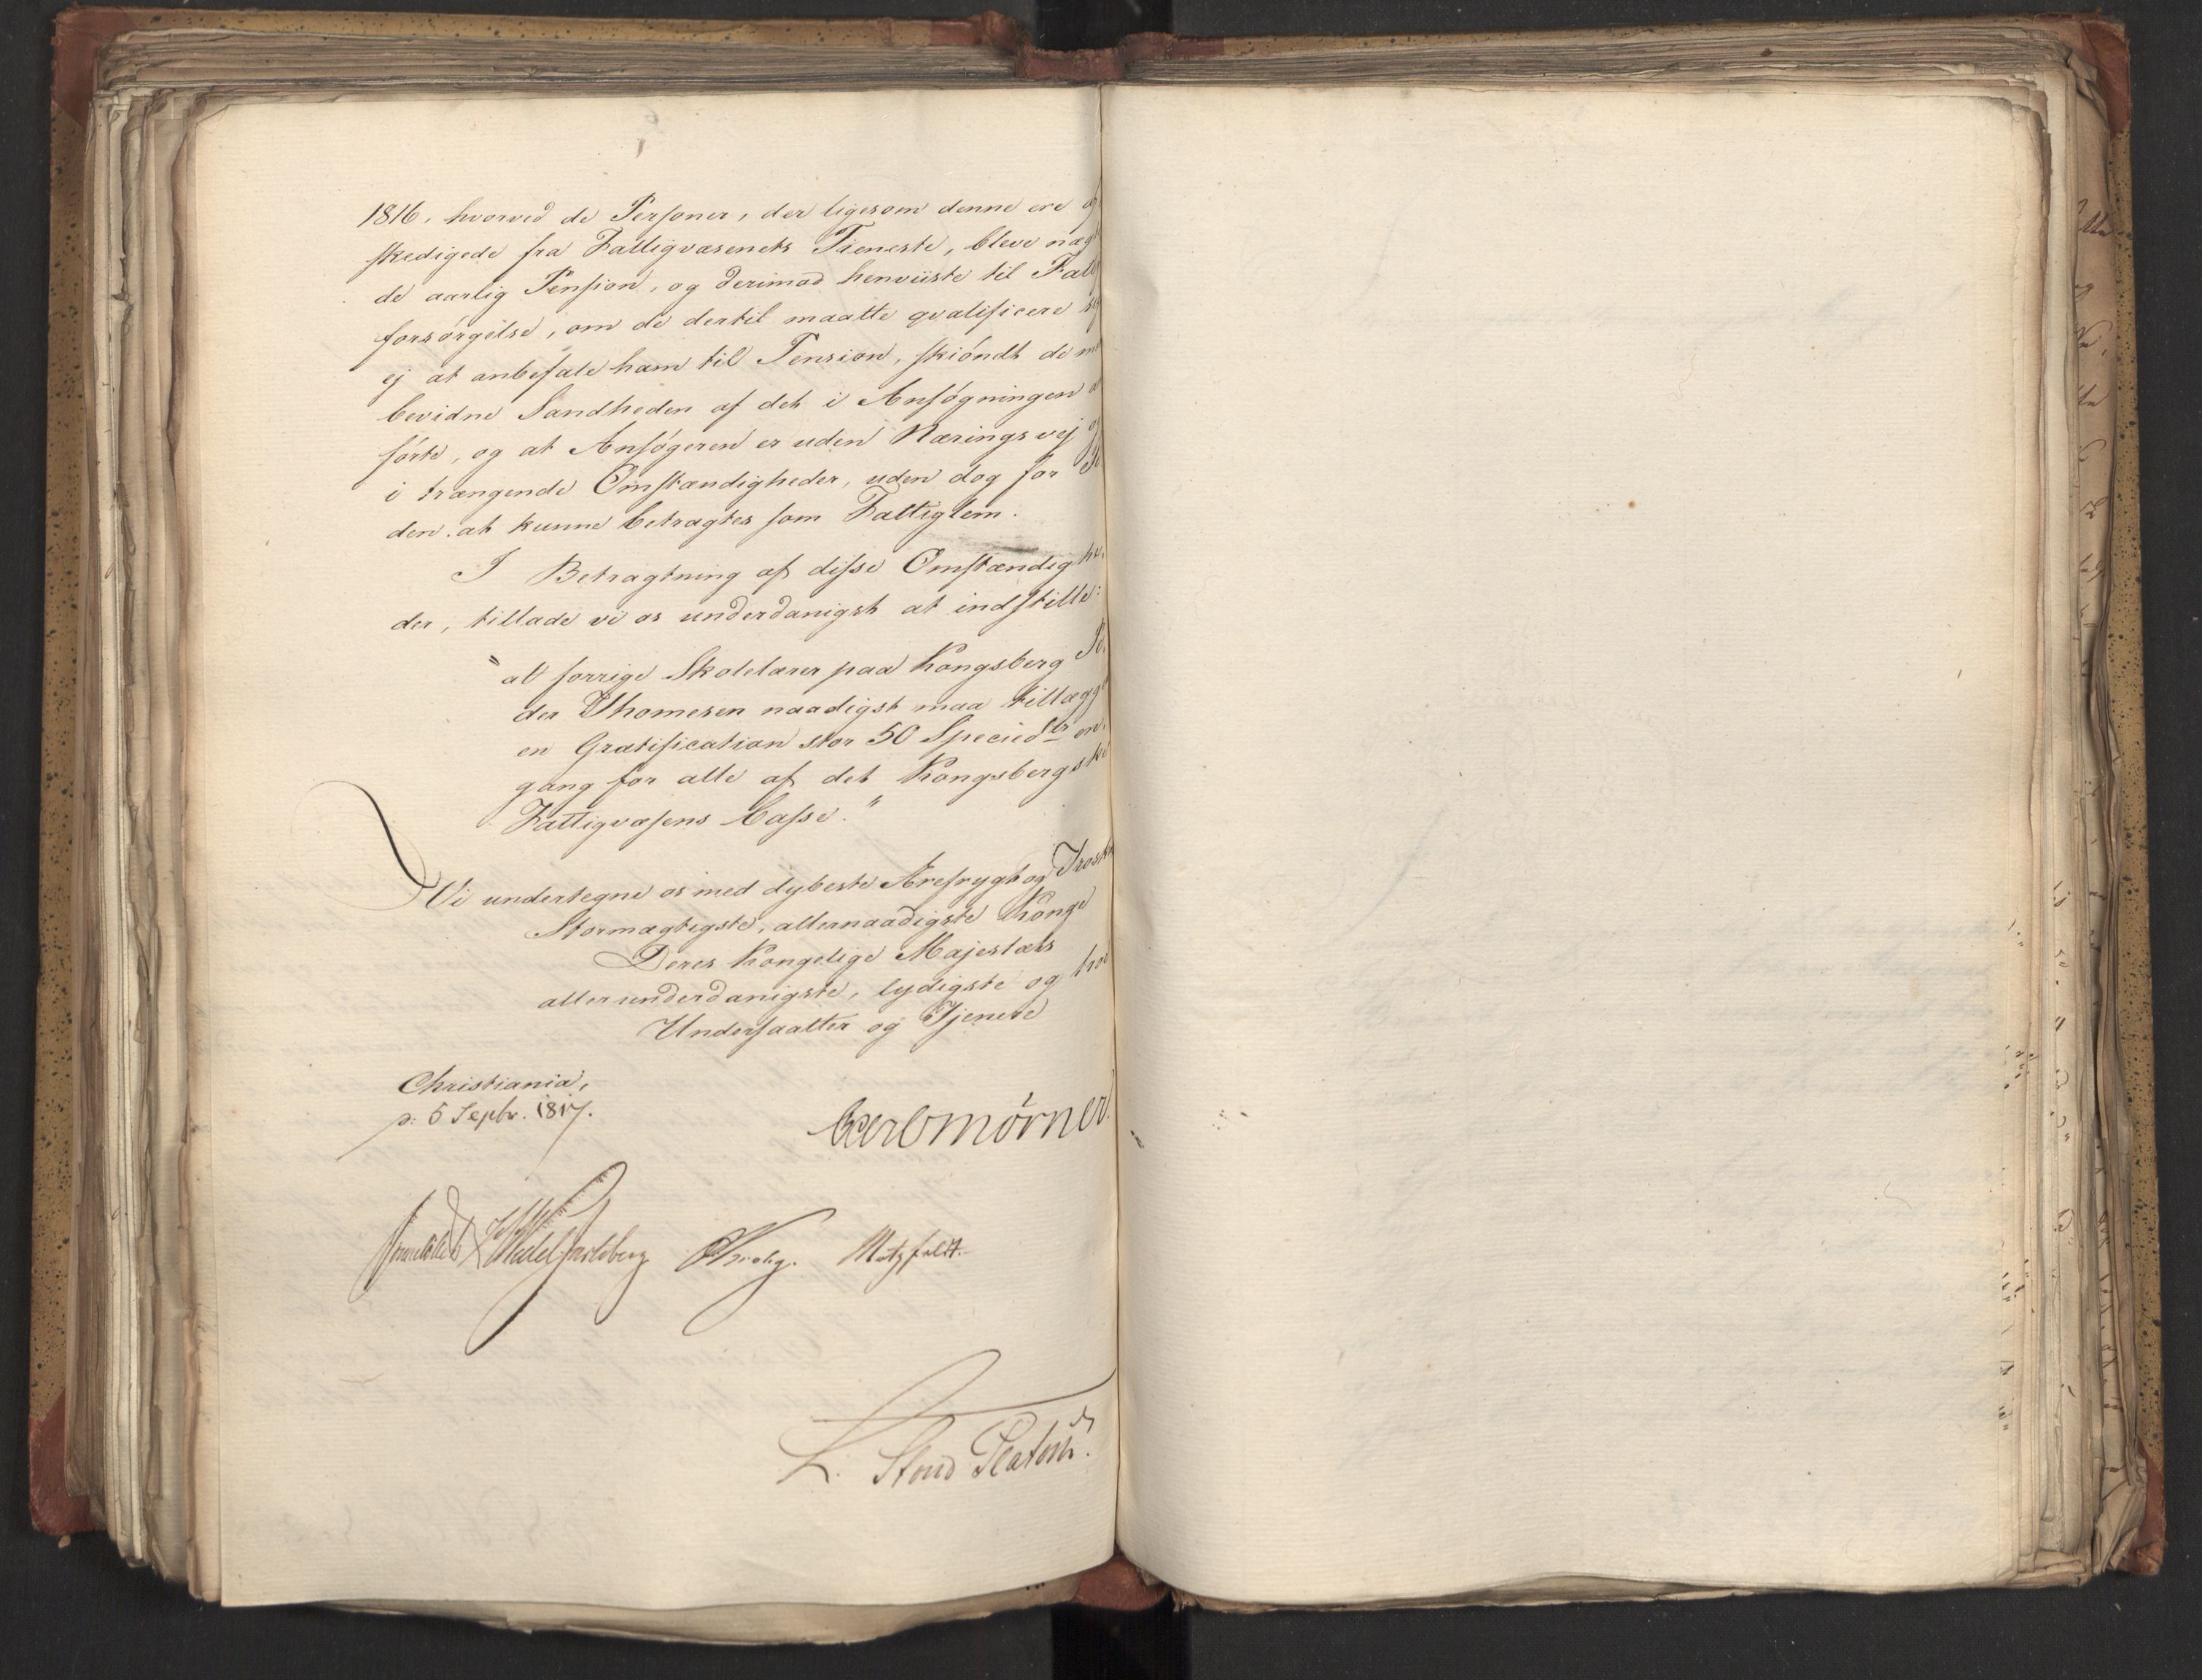 1816, hvorved de Personer, der ligesom denne ere
skedigede fra Fattigvæsenets Tieneste, bleve næg
de aarlig Pension, og derimod henviiste til Fatt
forsörgelse, om de dertil maatte qvalificere sig
ej at anbefale ham til Pension, skiöndt de
bevidne Sandheden af det i Ansögningen
förte, og at Ansögeren er uden Næringsvej og
i trængende Omstændigheder, uden dog for
den at kunne betragtes som Fattiglem.
I Betragtning af disse Omstændighe-
der, tillade vi os underdanigst at indstille:
"at forrige Skolelærer paa Kongsberg Pe-
der Thomesen naadigst maa tillægges
en Gratification stor 50 Specied<sup>lr</sup> en-
gang for alle af det Kongsbergske
Fattigvæsens Casse."
Vi undertegne os med dybeste Ærefrygt og Troskab
Stormægtigste, allernaadigste Konge
Deres Kongelige Majestæts
allerunderdanigste, lydigste og troe
Undersaatter og Tjenere
Christiania,
d: 5 Septbr. 1817.
Carl Mörner.
Sommerhielm Wedel Jarlsberg Krohg. Motzfeldt.
L. Stoud Platou